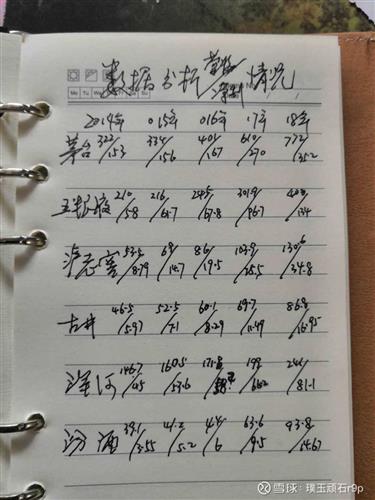 数据分析 营收/净利 情况
Mo Tu We Th Fr Sa Su
2014年 015年 016年 17年 18年
茅台 322/153 334/156 401/167 610/270 772/352
五粮液 210/58 216/61.7 245/67.8 301.9/96.7 400/134
泸老窖 53.5/8.79 69/14.7 86/19.5 103.9/25.5 130.6/34.8
古井 46.5/5.97 52.5/7.1 60.1/8.29 69.7/11.49 86.8/16.95
洋河 146.7/45 160.5/53.6 171.8/ 199/66.2 241/81.1
汾酒 39.1/3.55 41.2/5.2 44/6 63.6/9.5 93.8/14.67
雪球：璞玉顽石r9p